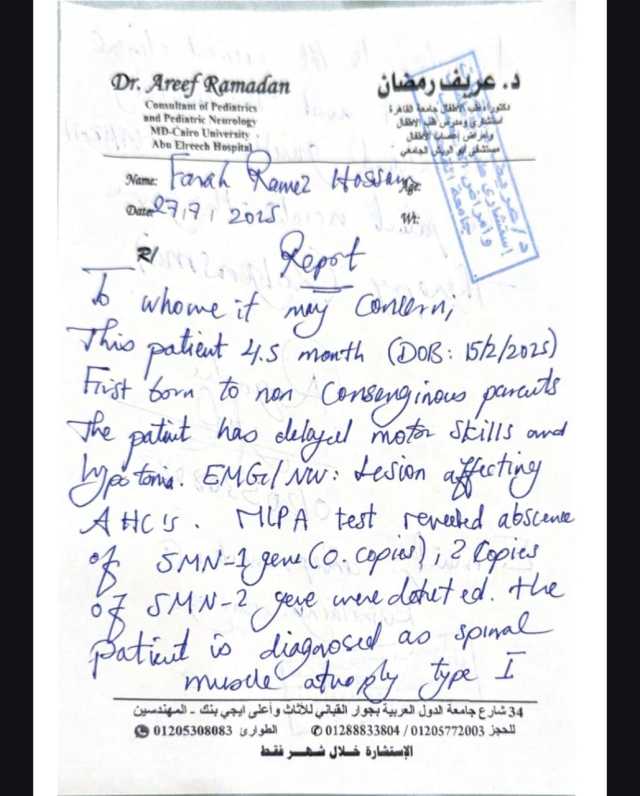 Dr. Areef Ramadan
Consultant of Pediatrics
and Pediatric Neurology
MD-Cairo University
Abu Elreech Hospital
د. عريف رمضان
دكتوراه طب الأطفال جامعة القاهرة
استشارى ومدرس طب الأطفال
وأمراض أعصاب الأطفال
مستشفى أبو الريش الجامعى
Name: Farah Ramez Hossam Age:
Date: 27/7/2025 Wt:
R/ Report
To whome it may concern,
This patient 4.5 month (DOB: 15/2/2025)
First born to non consenginous parents
The patient has delayed motor skills and
hypotonia. EMG/NW: Lesion affecting
AHC's. MLPA test reveeled abscense
of SMN-1 gene (0. copies), 2 Copies
of SMN-2 gene were detected. the
patient is diagnosed as spinal
muscle atrophy type I
34 شارع جامعة الدول العربية بجوار القباني للأثاث وأعلى ايجي بنك - المهندسين
للحجز 01205772003 / 01288833804 الطوارى 01205308083
الإستشارة خلال شهر فقط